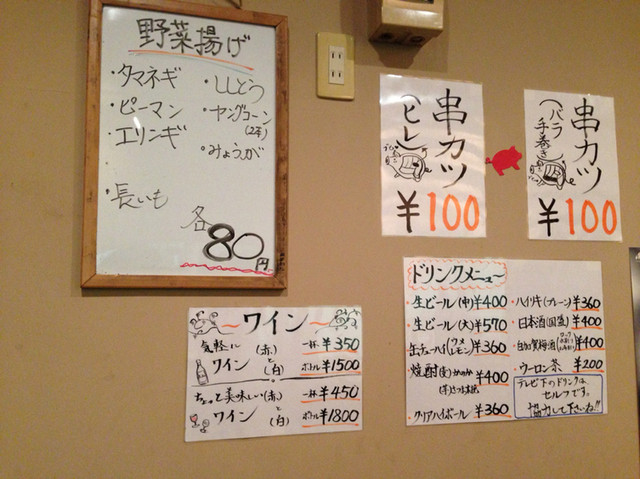 野菜揚げ
・タマネギ
・ピーマン
・エリンギ
・長いも
・ししとう
・ヤングコーン
(2本)
・みょうが
各80円
串カツ
(ヒレ)
¥100
串カツ
(バラ手巻き)
¥100
〜ワイン〜
気軽に
ワイン
(赤)
と
(白)
一杯 ¥350
ボトル ¥1500
ちょっと美味しい
ワイン
(赤)
と
(白)
一杯 ¥450
ボトル ¥1800
ドリンクメニュ〜
・生ビール(中) ¥400
・生ビール(大) ¥570
・缶チューハイ(ウメ レモン) ¥360
・焼酎(麦)
(芋)
¥400
・クリアハイボール ¥360
・ハイリキ(プレーン) ¥360
・日本酒(国盛) ¥400
・自加賀梅酒 ¥400
・ウーロン茶 ¥200
テレビ下のドリンクは、
セルフです。
協力して下さいね!!